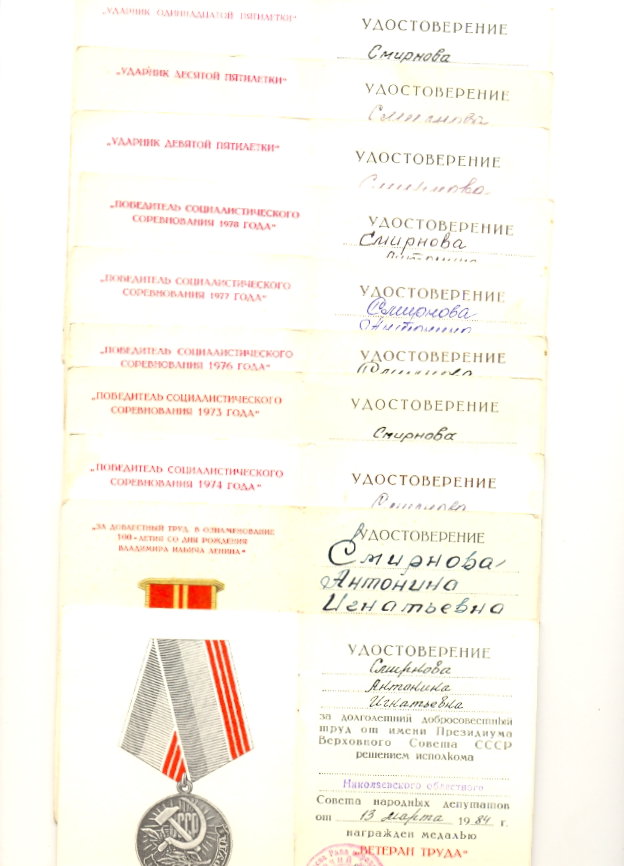 „УДАРНИК ОДИННАДЦАТОЙ ПЯТИЛЕТКИ“
УДОСТОВЕРЕНИЕ
Смирнова
„УДАРНИК ДЕСЯТОЙ ПЯТИЛЕТКИ“
УДОСТОВЕРЕНИЕ
Смирнова
„УДАРНИК ДЕВЯТОЙ ПЯТИЛЕТКИ“
УДОСТОВЕРЕНИЕ
Смирнова
„ПОБЕДИТЕЛЬ СОЦИАЛИСТИЧЕСКОГО
СОРЕВНОВАНИЯ 1978 ГОДА“
УДОСТОВЕРЕНИЕ
Смирнова
Антонина
„ПОБЕДИТЕЛЬ СОЦИАЛИСТИЧЕСКОГО
СОРЕВНОВАНИЯ 1977 ГОДА“
УДОСТОВЕРЕНИЕ
Смирнова
Антонина
„ПОБЕДИТЕЛЬ СОЦИАЛИСТИЧЕСКОГО
СОРЕВНОВАНИЯ 1976 ГОДА“
УДОСТОВЕРЕНИЕ
„ПОБЕДИТЕЛЬ СОЦИАЛИСТИЧЕСКОГО
СОРЕВНОВАНИЯ 1973 ГОДА“
УДОСТОВЕРЕНИЕ
Смирнова
„ПОБЕДИТЕЛЬ СОЦИАЛИСТИЧЕСКОГО
СОРЕВНОВАНИЯ 1974 ГОДА“
УДОСТОВЕРЕНИЕ
Смирнова
„ЗА ДОБЛЕСТНЫЙ ТРУД В ОЗНАМЕНОВАНИЕ
100-ЛЕТИЯ СО ДНЯ РОЖДЕНИЯ
ВЛАДИМИРА ИЛЬИЧА ЛЕНИНА“
УДОСТОВЕРЕНИЕ
Смирнова
Антонина
Игнатьевна
СССР
УДОСТОВЕРЕНИЕ
Смирнова
Антонина
Игнатьевна
за долголетний добросовестный
труд от имени Президиума
Верховного Совета СССР
решением исполкома
Николаевского областного
Совета народных депутатов
от 13 марта 1984 г.
награжден медалью
„ВЕТЕРАН ТРУДА“